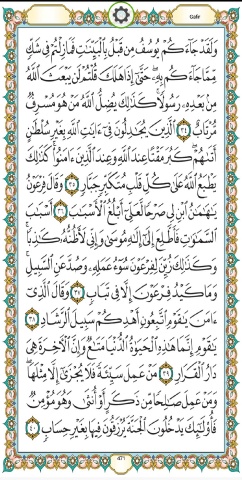 Gafir
وَلَقَدْ جَآءَكُمْ يُوسُفُ مِن قَبْلُ بِٱلْبَيِّنَٰتِ فَمَا زِلْتُمْ فِى شَكٍّ
مِّمَّا جَآءَكُم بِهِۦ حَتَّىٰٓ إِذَا هَلَكَ قُلْتُمْ لَن يَبْعَثَ ٱللَّهُ
مِنۢ بَعْدِهِۦ رَسُولًا كَذَٰلِكَ يُضِلُّ ٱللَّهُ مَنْ هُوَ مُسْرِفٌ
مُّرْتَابٌ ٣٤ ٱلَّذِينَ يُجَٰدِلُونَ فِىٓ ءَايَٰتِ ٱللَّهِ بِغَيْرِ سُلْطَٰنٍ
أَتَىٰهُمْ كَبُرَ مَقْتًا عِندَ ٱللَّهِ وَعِندَ ٱلَّذِينَ ءَامَنُوا۟ كَذَٰلِكَ
يَطْبَعُ ٱللَّهُ عَلَىٰ كُلِّ قَلْبِ مُتَكَبِّرٍ جَبَّارٍ ٣٥ وَقَالَ فِرْعَوْنُ
يَٰهَٰمَٰنُ ٱبْنِ لِى صَرْحًا لَّعَلِّىٓ أَبْلُغُ ٱلْأَسْبَٰبَ ٣٦ أَسْبَٰبَ
ٱلسَّمَٰوَٰتِ فَأَطَّلِعَ إِلَىٰٓ إِلَٰهِ مُوسَىٰ وَإِنِّى لَأَظُنُّهُۥ كَٰذِبًا
وَكَذَٰلِكَ زُيِّنَ لِفِرْعَوْنَ سُوٓءُ عَمَلِهِۦ وَصُدَّ عَنِ ٱلسَّبِيلِ
وَمَا كَيْدُ فِرْعَوْنَ إِلَّا فِى تَبَابٍ ٣٧ وَقَالَ ٱلَّذِىٓ
ءَامَنَ يَٰقَوْمِ ٱتَّبِعُونِ أَهْدِكُمْ سَبِيلَ ٱلرَّشَادِ ٣٨
يَٰقَوْمِ إِنَّمَا هَٰذِهِ ٱلْحَيَوٰةُ ٱلدُّنْيَا مَتَٰعٌ وَإِنَّ ٱلْءَاخِرَةَ هِىَ
دَارُ ٱلْقَرَارِ ٣٩ مَنْ عَمِلَ سَيِّئَةً فَلَا يُجْزَىٰٓ إِلَّا مِثْلَهَا
وَمَنْ عَمِلَ صَٰلِحًا مِّن ذَكَرٍ أَوْ أُنثَىٰ وَهُوَ مُؤْمِنٌ
فَأُو۟لَٰٓئِكَ يَدْخُلُونَ ٱلْجَنَّةَ يُرْزَقُونَ فِيهَا بِغَيْرِ حِسَابٍ ٤٠
471